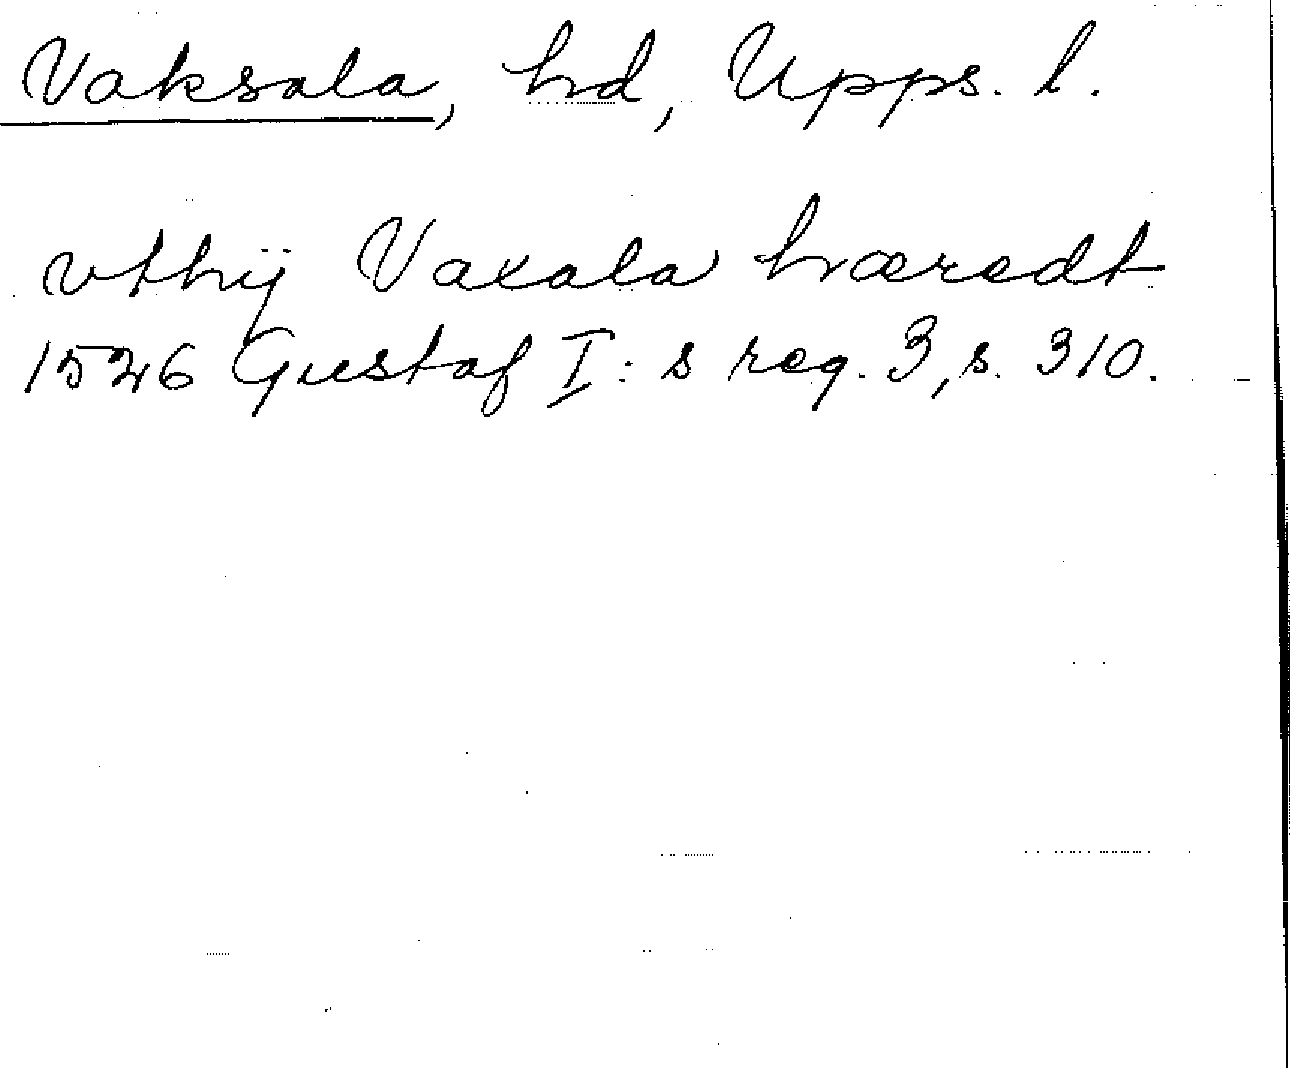 Vaksala, hd, Upps. l.
vthÿ Vaxala hæredt
1526 Gustaf I:s reg. 3, s. 310.